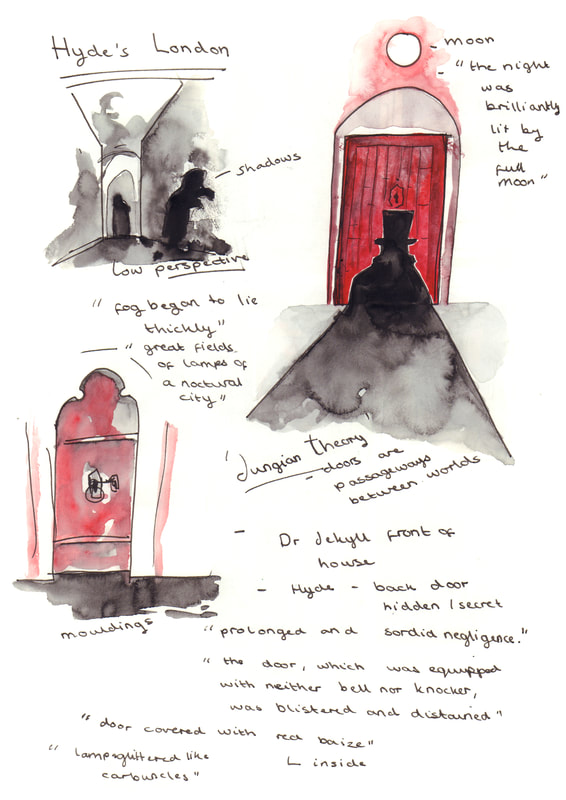 Hyde's London
moon
"the night
was
brilliantly
lit by
the
full
moon"
shadows
low perspective
"fog began to lie
thickly"
"great fields
of lamps of
a noctural
city"
'Jungian theory
- doors are
passageways
between worlds
- Dr Jekyll front of
house
- Hyde - back door
hidden / secret
mouldings
"prolonged and sordid negligence."
"the door, which was equipped
with neither bell nor knocker,
was blistered and distained"
"door covered with red baize"
L inside
"lampsglittered like
carbuncles"